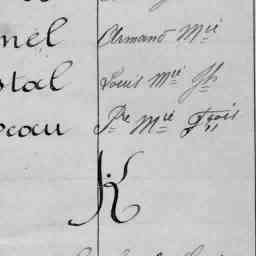 nel Armand Mie
stal Louis Mie Jh
ocau Pre Mie Fçois
K